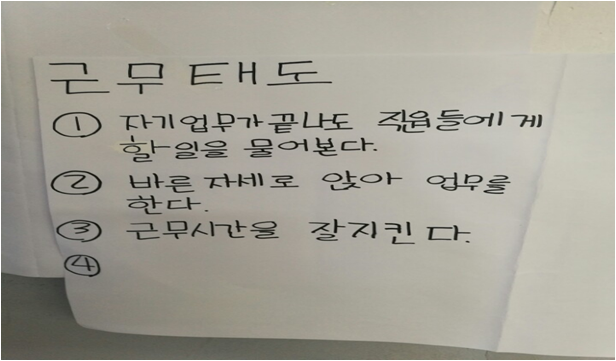 근무태도
① 자기업무가 끝나도 직원들에게
할일을 물어본다.
② 바른 자세로 앉아 업무를
한다.
③ 근무시간을 잘지킨다.
④